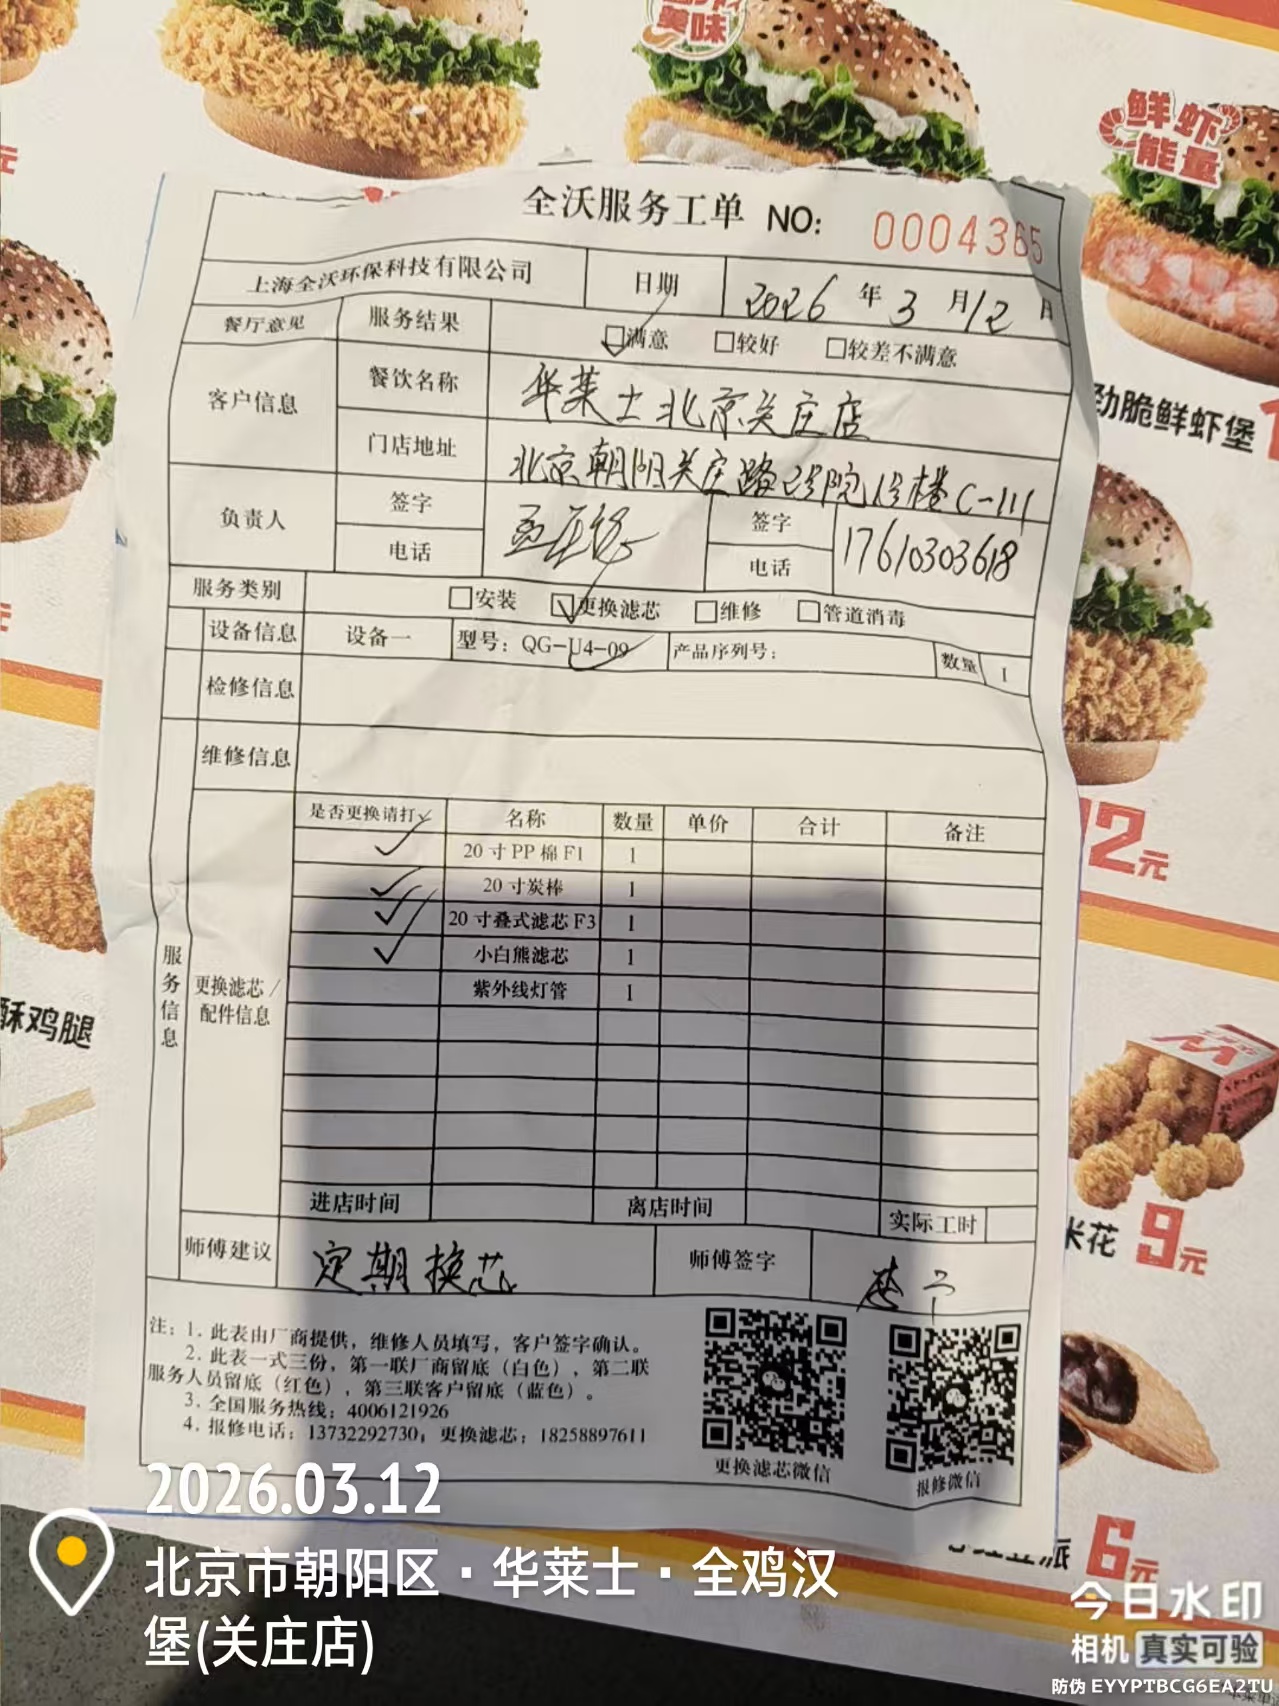 美味
鲜虾
能量
元
劲脆鲜虾堡 1
全沃服务工单 NO: 0004365
上海全沃环保科技有限公司 日期 2026 年 3 月 12 日
餐厅意见 服务结果 满意 较好 较差不满意
客户信息 餐饮名称 华莱士北京关庄店
门店地址 北京朝阳关庄路2号院1号楼C-111
负责人 签字 签字
电话 电话 17610303618
服务类别 安装 更换滤芯 维修 管道消毒
设备信息 设备一 型号：QG-U4-09 产品序列号： 数量 1
检修信息
维修信息
是否更换请打✓ 名称 数量 单价 合计 备注
✓ 20寸PP棉F1 1
✓ 20寸炭棒 1
✓ 20寸叠式滤芯F3 1
✓ 小白熊滤芯 1
紫外线灯管 1
服务信息
更换滤芯/
配件信息
进店时间 离店时间 实际工时
师傅建议 定期换芯 师傅签字
注：1. 此表由厂商提供，维修人员填写，客户签字确认。
2. 此表一式三份，第一联厂商留底（白色），第二联
服务人员留底（红色），第三联客户留底（蓝色）。
3. 全国服务热线：4006121926
4. 报修电话：13732292730；更换滤芯：18258897611
更换滤芯微信 报修微信
12元
酥鸡腿
米花 9元
派 6元
2026.03.12
北京市朝阳区·华莱士·全鸡汉
堡(关庄店)
今日水印
相机 真实可验
防伪 EYYPTBCG6EA2TU